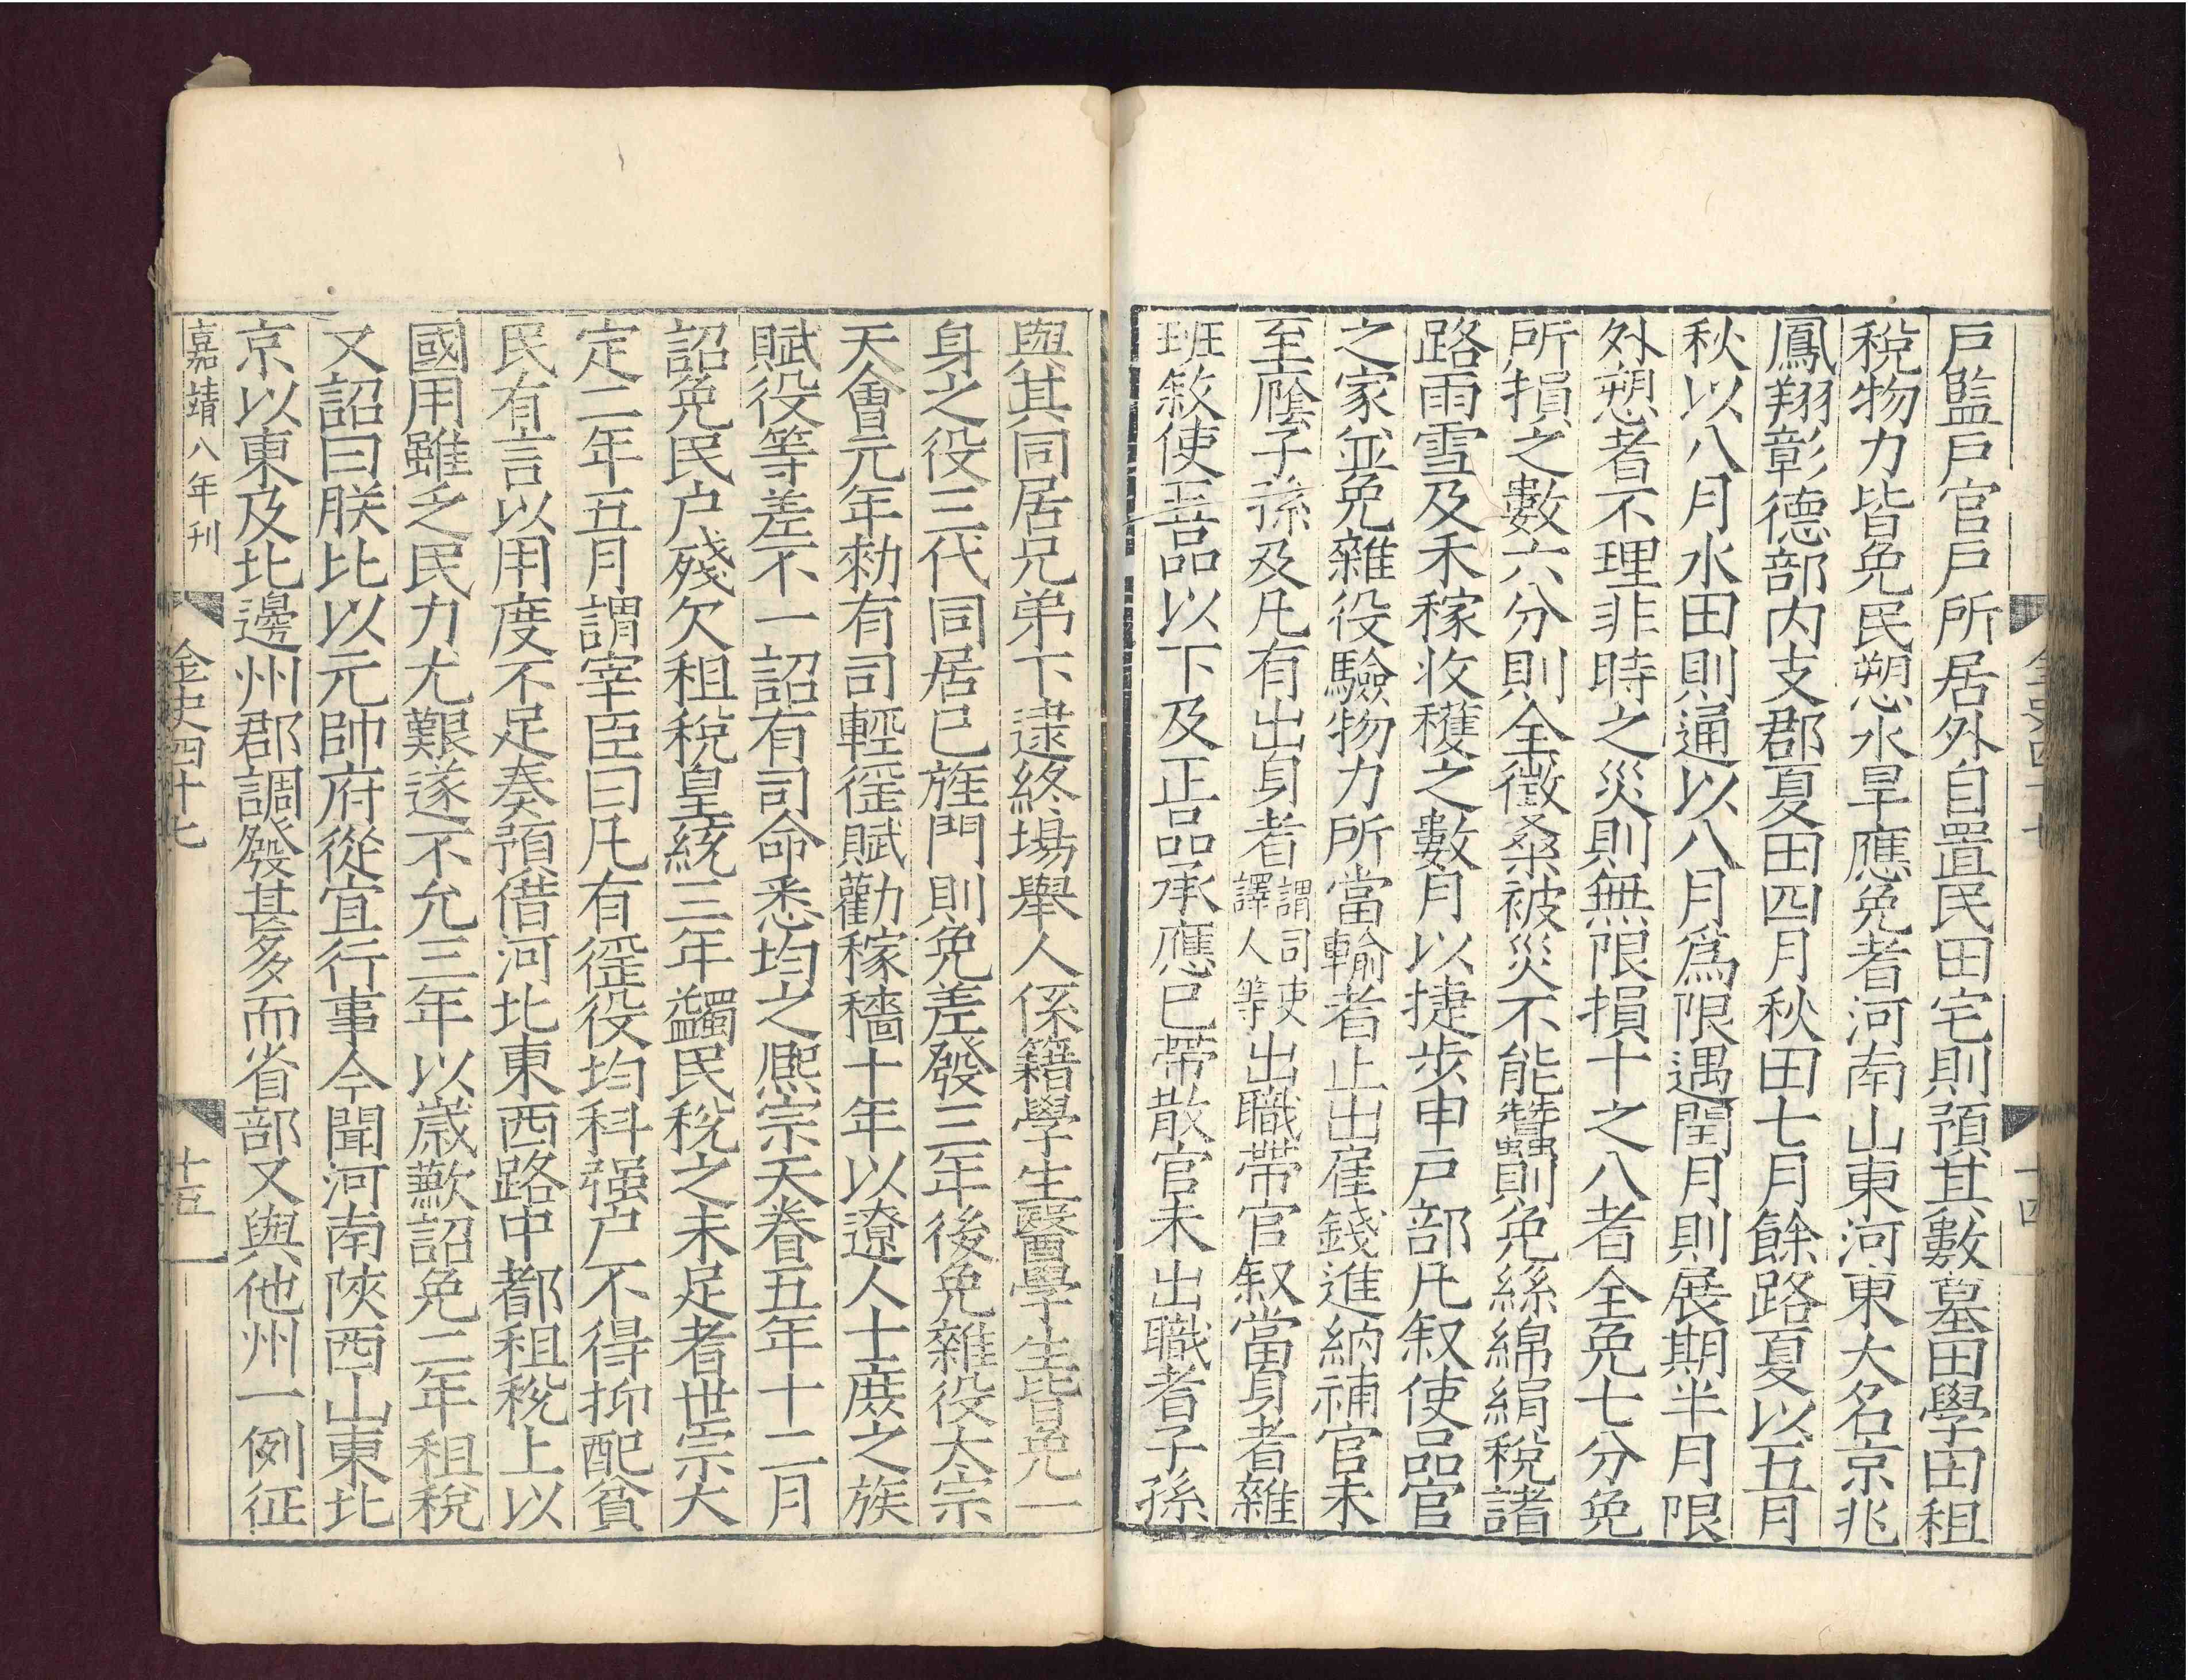 金史四十七
十四
戶監戶官戶所居外自置民田宅則預其數墓田學田租
稅物力皆免民愬水旱應免者河南山東河東大名京兆
鳳翔彰德部内支郡夏田四月秋田七月餘路夏以五月
秋以八月水田則通以八月爲限遇閏月則展期半月限
外愬者不理非時之災則無限損十之八者全免七分免
所損之數六分則全徵桑被災不能蠶則免絲綿絹稅諸
路雨雪及禾稼收穫之數月以捷步申戶部凡叙使品官
之家並免雜役驗物力所當輸者止出雇錢進納補官未
至廕子孫及凡有出身者謂司吏譯人等出職帶官叙當身者雜
班敘使五品以下及正品承應已帶散官未出職者子孫
與其同居兄弟下逮終場舉人係籍學生醫學生皆免一
身之役三代同居已旌門則免差發三年後免雜役太宗
天會元年勑有司輕徭賦勸稼穡十年以遼人士庶之族
賦役等差不一詔有司命悉均之熈宗天眷五年十二月
詔免民户殘欠租稅皇統三年蠲民稅之未足者世宗大
定二年五月謂宰臣曰凡有徭役均科强户不得抑配貧
民有言以用度不足奏預借河北東西路中都租稅上以
國用雖乏民力尤艱遂不允三年以歲歉詔免二年租稅
又詔曰朕比以元帥府從宜行事今聞河南陜西山東北
京以東及北邊州郡調發甚多而省部又與他州一例征
嘉靖八年刊
金史四十七
十五